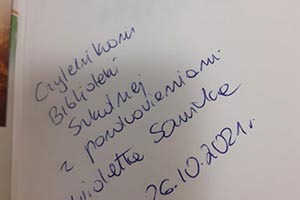 Czytelnikom
Biblioteki
Szkolnej
z pozdrowieniami
Wioletta
26.10.2021r.